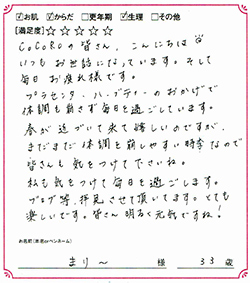 ☑お肌 ☑からだ □更年期 ☑生理 □その他
[満足度]☆☆☆☆☆
CoCoROの皆さん、こんにちは
いつもお世話になっています。そして
毎日お疲れ様です。
プラセンタ・ハーブティーのおかげで
体調も崩さず毎日を過ごしています。
春が近づいて来て嬉しいのですが、
まだまだ体調を崩しやすい時季なので
皆さんも気をつけて下さいね。
私も気をつけて毎日を過ごします。
ブログ等、拝見させて頂いてます。とても
楽しいです。皆さん明るく元気ですね!
お名前(本名orペンネーム)
まり〜 様 33 歳